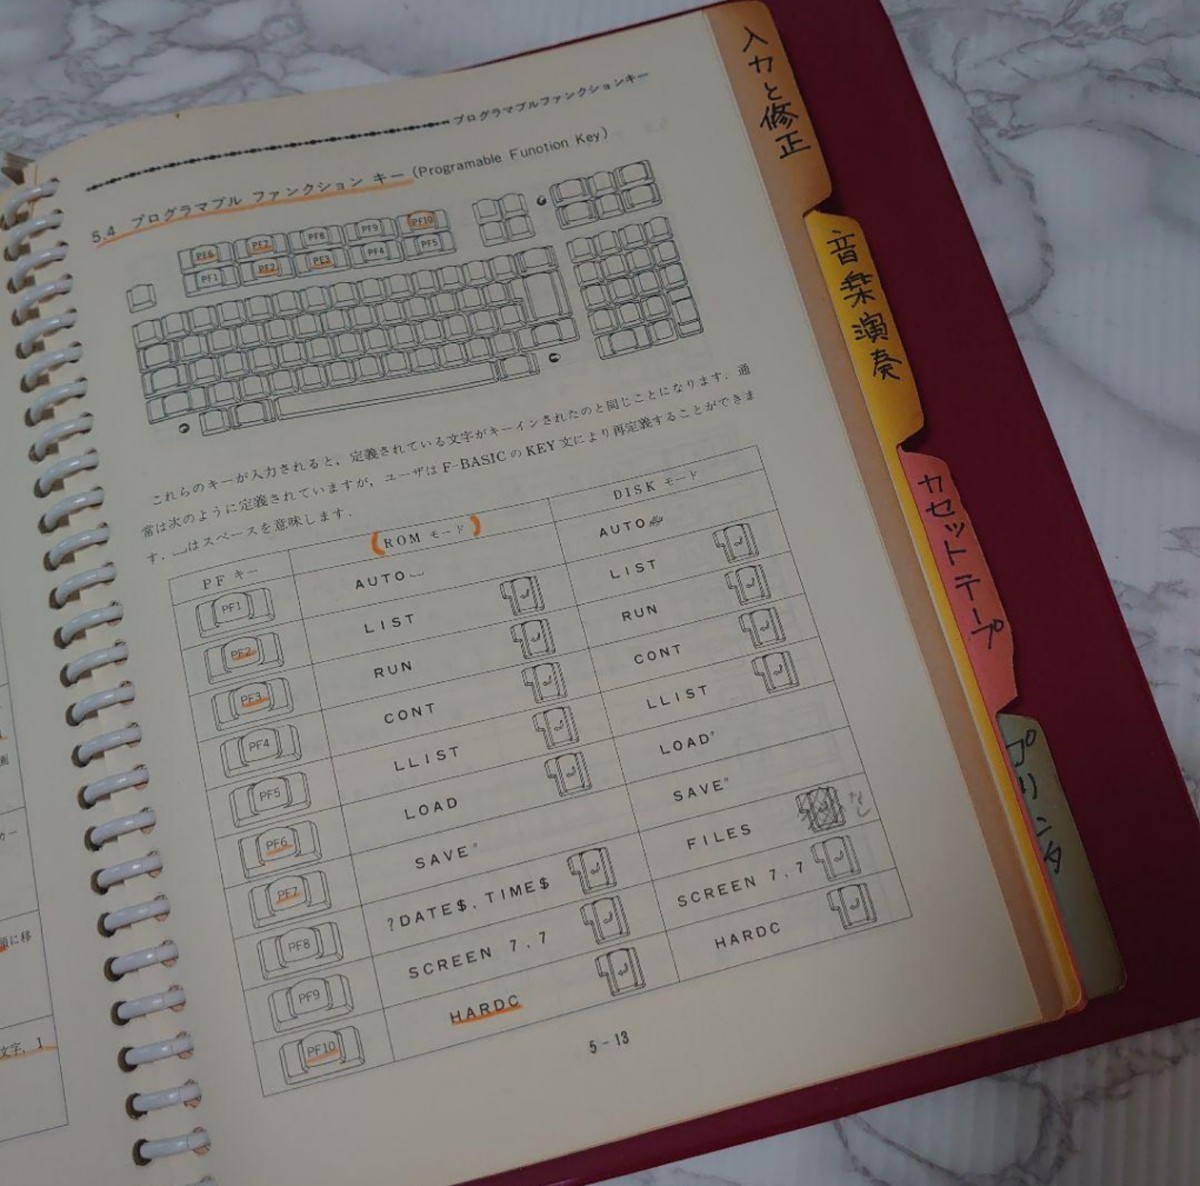 プログラマブルファンクションキー
5.4 プログラマブル ファンクション キー (Programable Funotion Key)
PF6 PF7 PF8 PF9 PF10
PF1 PF2 PF3 PF4 PF5
これらのキーが入力されると，定義されている文字がキーインされたのと同じことになります．通
常は次のように定義されていますが，ユーザは F-BASIC の KEY 文により再定義することができま
す．␣はスペースを意味します．
PF キー (ROM モード) DISK モード
PF1 AUTO␣ AUTO
PF2 LIST LIST
PF3 RUN RUN
PF4 CONT CONT
PF5 LLIST LLIST
PF6 LOAD LOAD"
PF7 SAVE" SAVE"
PF8 ?DATE$, TIME$ FILES なし
PF9 SCREEN 7,7 SCREEN 7,7
PF10 HARDC HARDC
5-13
入力と修正
音楽演奏
カセットテープ
プリンタ
カー
頭に移
文字，1